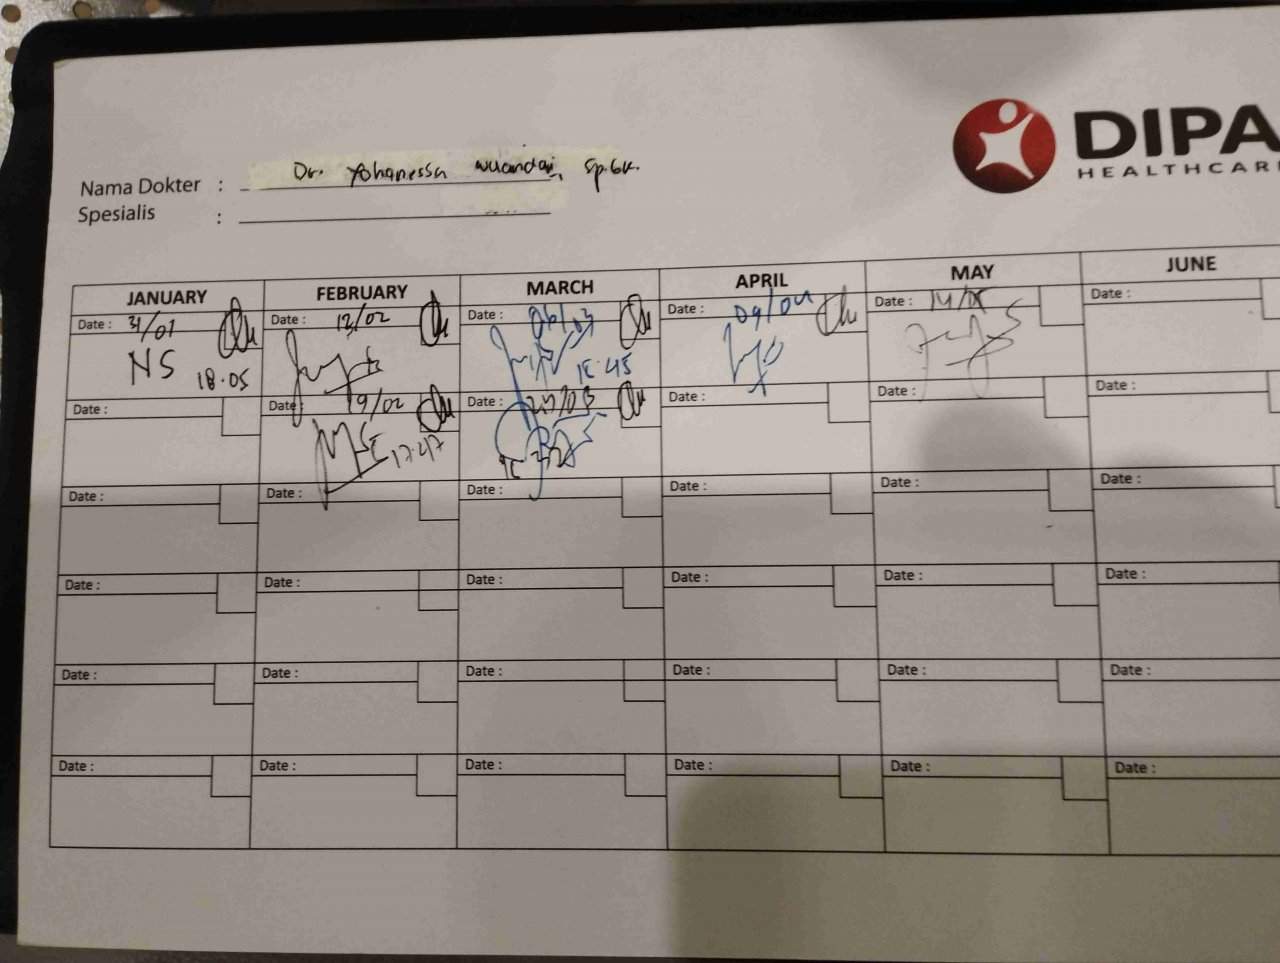 DIPA
HEALTHCAR
Nama Dokter : Dr. Yohanessa Wuandari, Sp.GK.
Spesialis :
JANUARY FEBRUARY MARCH APRIL MAY JUNE
Date : 31/01 Date : 13/02 Date : 06/03 Date : 09/04 Date : 14/05 Date :
NS 18.05
Date : Date : 19/02 Date : 27/03 Date : Date : Date :
17.47
Date : Date : Date : Date : Date : Date :
Date : Date : Date : Date : Date : Date :
Date : Date : Date : Date : Date : Date :
Date : Date : Date : Date : Date : Date :